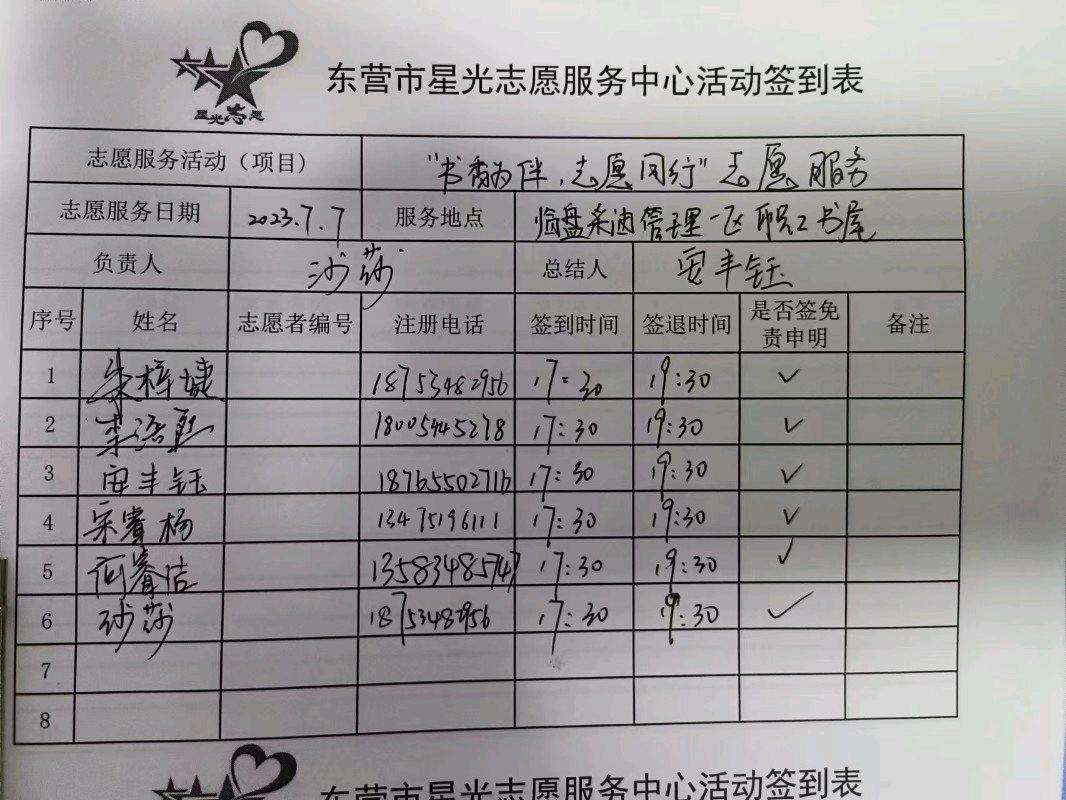 星光志愿
东营市星光志愿服务中心活动签到表
志愿服务活动（项目） "书香为伴，志愿同行"志愿服务
志愿服务日期 2023.7.7 服务地点 临盘采油管理一区职工书屋
负责人 沙莎 总结人 安丰钰
序号 姓名 志愿者编号 注册电话 签到时间 签退时间 是否签免责申明 备注
1 朱梓婕 18753482956 17:30 19:30 ✓
2 李 18005445278 17:30 19:30 ✓
3 安丰钰 18765502716 17:30 19:30 ✓
4 宋睿杨 13475196111 17:30 19:30 ✓
5 睿洁 13583485747 17:30 19:30 ✓
6 沙莎 18753482956 17:30 19:30 ✓
7
8
东营市星光志愿服务中心活动签到表